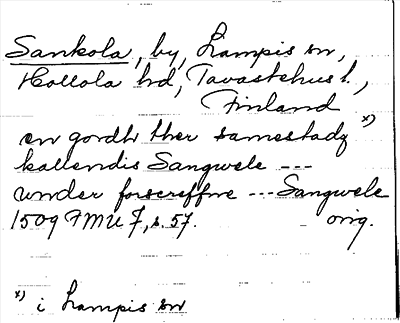 Sankola, by, Lampis sn,
Hollola hd, Tavastehus l.,
Finland
en gordh ther samestadz x)
kallendis Sangwele ---
under forscreffne --- Sangwele
1509 FMU 7, s. 57. orig.
x) i Lampis sn